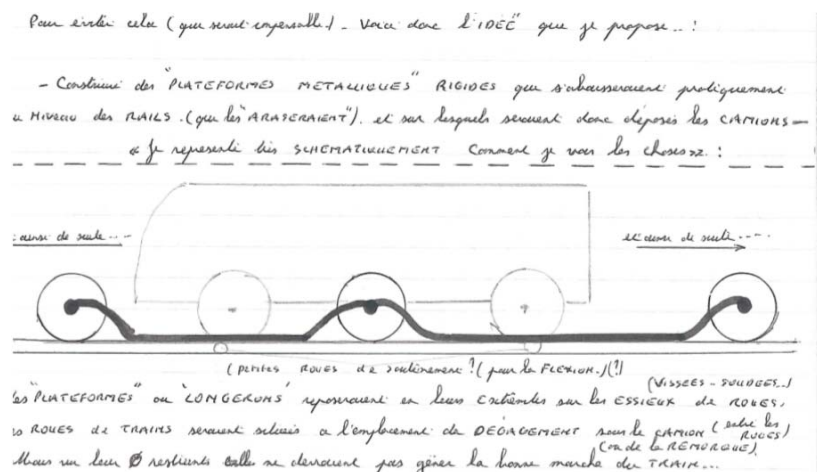 Pour éviter cela (que serait impensable!) - Voici donc l'"IDÉE" que je propose..!
- Construire des "PLATEFORMES METALLIQUES" RIGIDES que s'abaisseraient pratiquement
u NIVEAU des RAILS. (que les "ARASERAIENT"). et sur lesquels seraient donc déposés les CAMIONS -
« Je représente très SCHEMATIQUEMENT Comment je vois les choses ». :
ainsi de suite ...
et ainsi de suite ....
(petites ROUES de soutènement? (pour la FLEXION.) (!)
(VISSEES - SOUDEES..)
es "PLATEFORMES" ou "LONGERONS" reposeraient en leurs Extrêmités sur les ESSIEUX de ROUES,
es ROUES de TRAINS seraient situées à l'emplacement de DÉGAGEMENT sous le CAMION (entre les ROUES)
(ou de la REMORQUE)
leur Ø restreint elles ne devraient pas gêner la bonne marche du TRAIN...